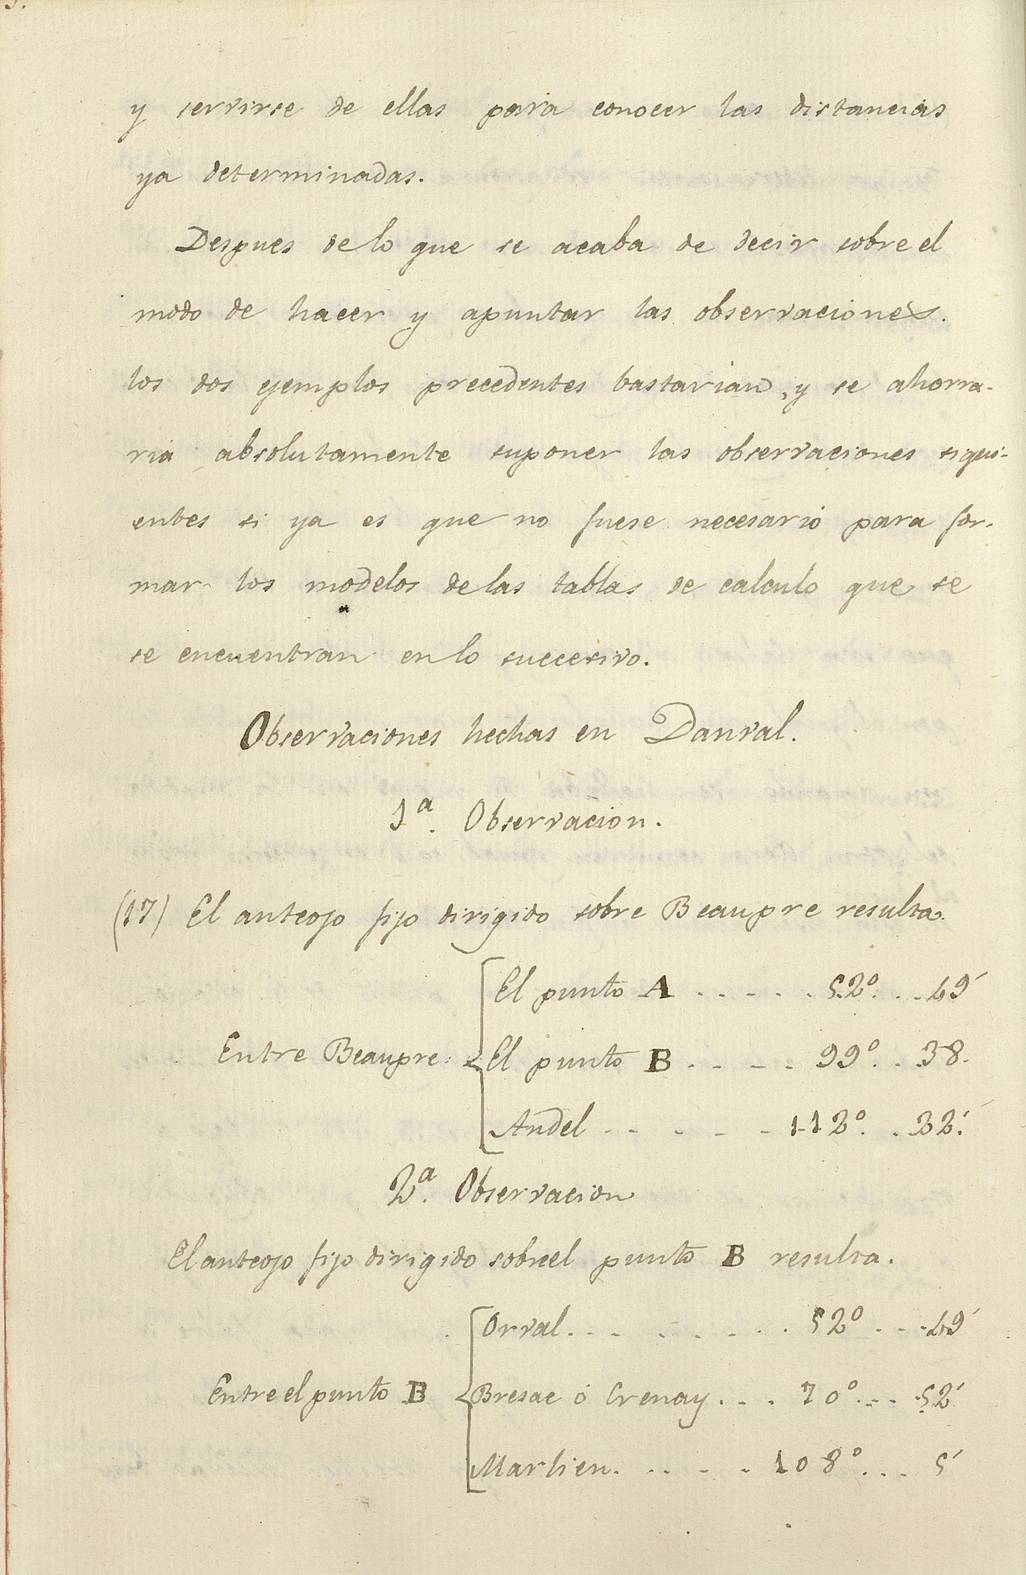 y servirse de ellas para conocer las distancias
ya determinadas.
Despues de lo que se acaba de decir sobre el
modo de hacer y apuntar las observaciones.
los dos ejemplos precedentes bastarian, y se ahorra-
ria absolutamente suponer las observaciones sigui-
entes si ya es que no fuese necesario para for-
mar los modelos de las tablas de calculo que se
se encuentran en lo succesivo.
Observaciones hechas en Danval.
1ª. Observacion.
(17) El anteojo fijo dirigido sobre Beaupre resulta.
El punto A . . . . . 52°. . . 49´
Entre Beaupre. El punto B . . . . . 99°. . . 38.
Andel . . . . . 112°. . 32´.
2ª. Observacion
El anteojo fijo dirigido sobre el punto B resulta.
Orval. . . . . . . . 52° . . . 49´
Entre el punto B Bresac ó Crenay . . . 70° . . . 52´
Marlien. . . . . . 108° . . . 5´